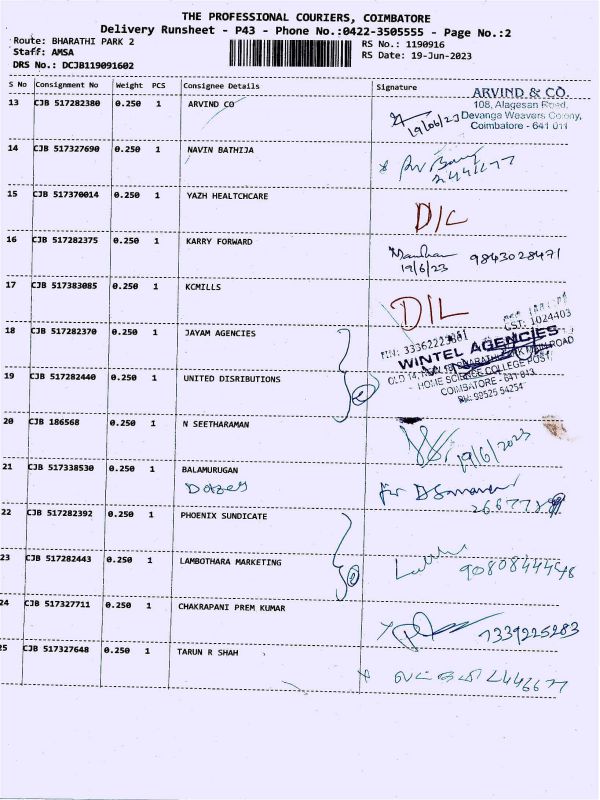 THE PROFESSIONAL COURIERS, COIMBATORE
Delivery Runsheet - P43 - Phone No.:0422-3505555 - Page No.:2
Route: BHARATHI PARK 2
RS No.: 1190916
Staff: AMSA
RS Date: 19-Jun-2023
DRS No.: DCJB119091602
S No Consignment No Weight PCS Consignee Details Signature
13 CJB 517282380 0.250 1 ARVIND CO
19/06/23
ARVIND & CO.
108, Alagesan Road,
Devanga Weavers Colony,
Coimbatore - 641 011
14 CJB 517327690 0.250 1 NAVIN BATHIJA
15 CJB 517370014 0.250 1 YAZH HEALTCHCARE
D/L
16 CJB 517282375 0.250 1 KARRY FORWARD
19/6/23 9843028471
17 CJB 517383085 0.250 1 KCMILLS
D/L
18 CJB 517282370 0.250 1 JAYAM AGENCIES
CST: 1024403
WINTEL AGENCIES
HOME SCIENCE COLLEGE POST
COIMBATORE - 641
PH: 98525 54254
19 CJB 517282440 0.250 1 UNITED DISRIBUTIONS
2
20 CJB 186568 0.250 1 N SEETHARAMAN
19/6/2023
21 CJB 517338530 0.250 1 BALAMURUGAN
for
22 CJB 517282392 0.250 1 PHOENIX SUNDICATE
23 CJB 517282443 0.250 1 LAMBOTHARA MARKETING
2
9080844448
24 CJB 517327711 0.250 1 CHAKRAPANI PREM KUMAR
7339225283
25 CJB 517327648 0.250 1 TARUN R SHAH